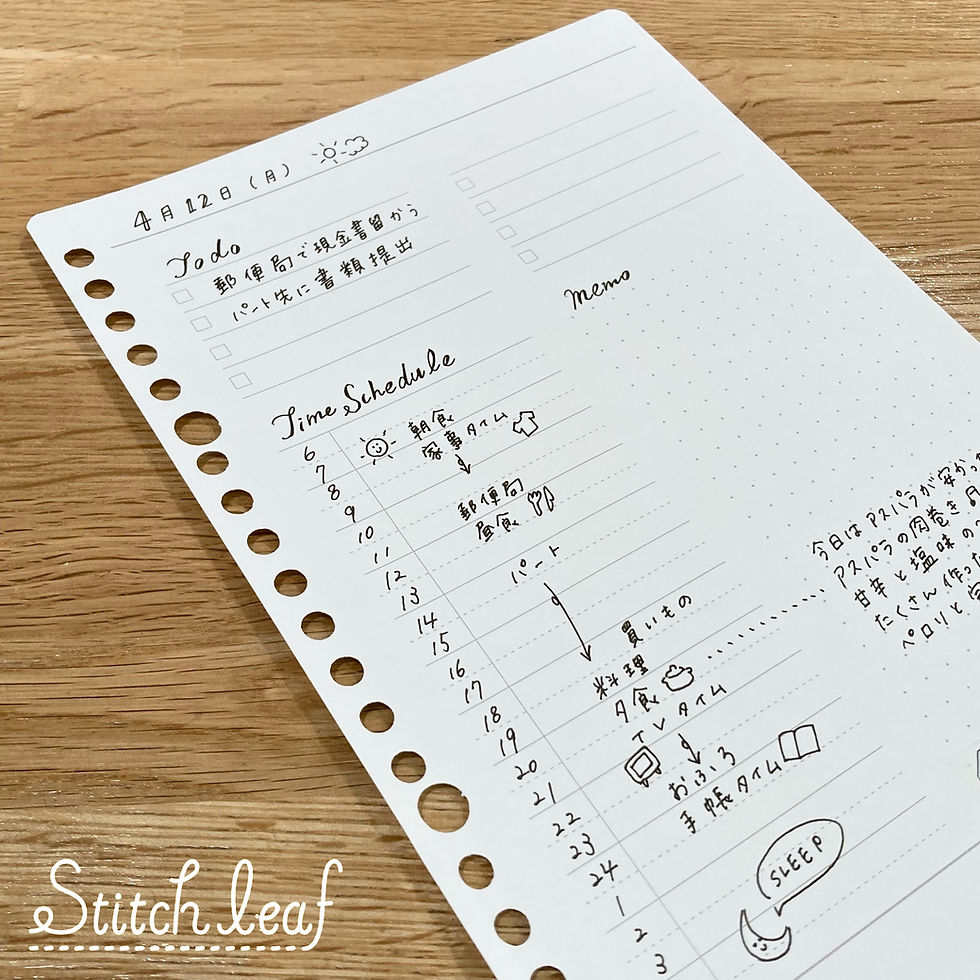 4月12日(月)
Todo
郵便局で現金書留かう
パート先に書類提出
memo
Time Schedule
6
7
8
9
10
11
12
13
14
15
16
17
18
19
20
21
22
23
24
1
2
3
朝食
家事タイム
郵便局
昼食
パート
買いもの
料理
夕食
TVタイム
おふろ
手帳タイム
SLEEP
今日はアスパラが安かっ
アスパラの肉巻き
甘辛と塩味の
たくさん作った
ペロリと
Stitch leaf